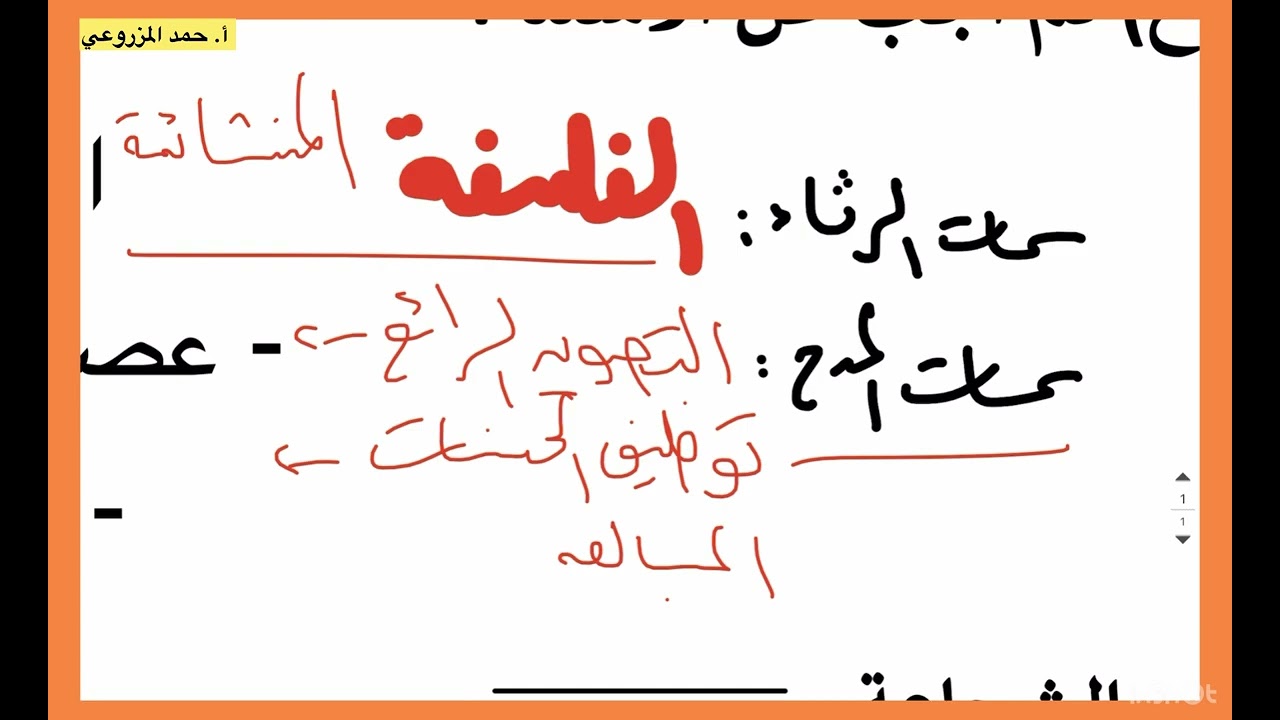 أ. حمد المزروعي
سمات الرثاء: الفلسفة المتشائمة
سمات المدح: التصوير الرائع ← - عصـ
توظيف المحسنات ←
-
المبالغه
1
1
InShOt